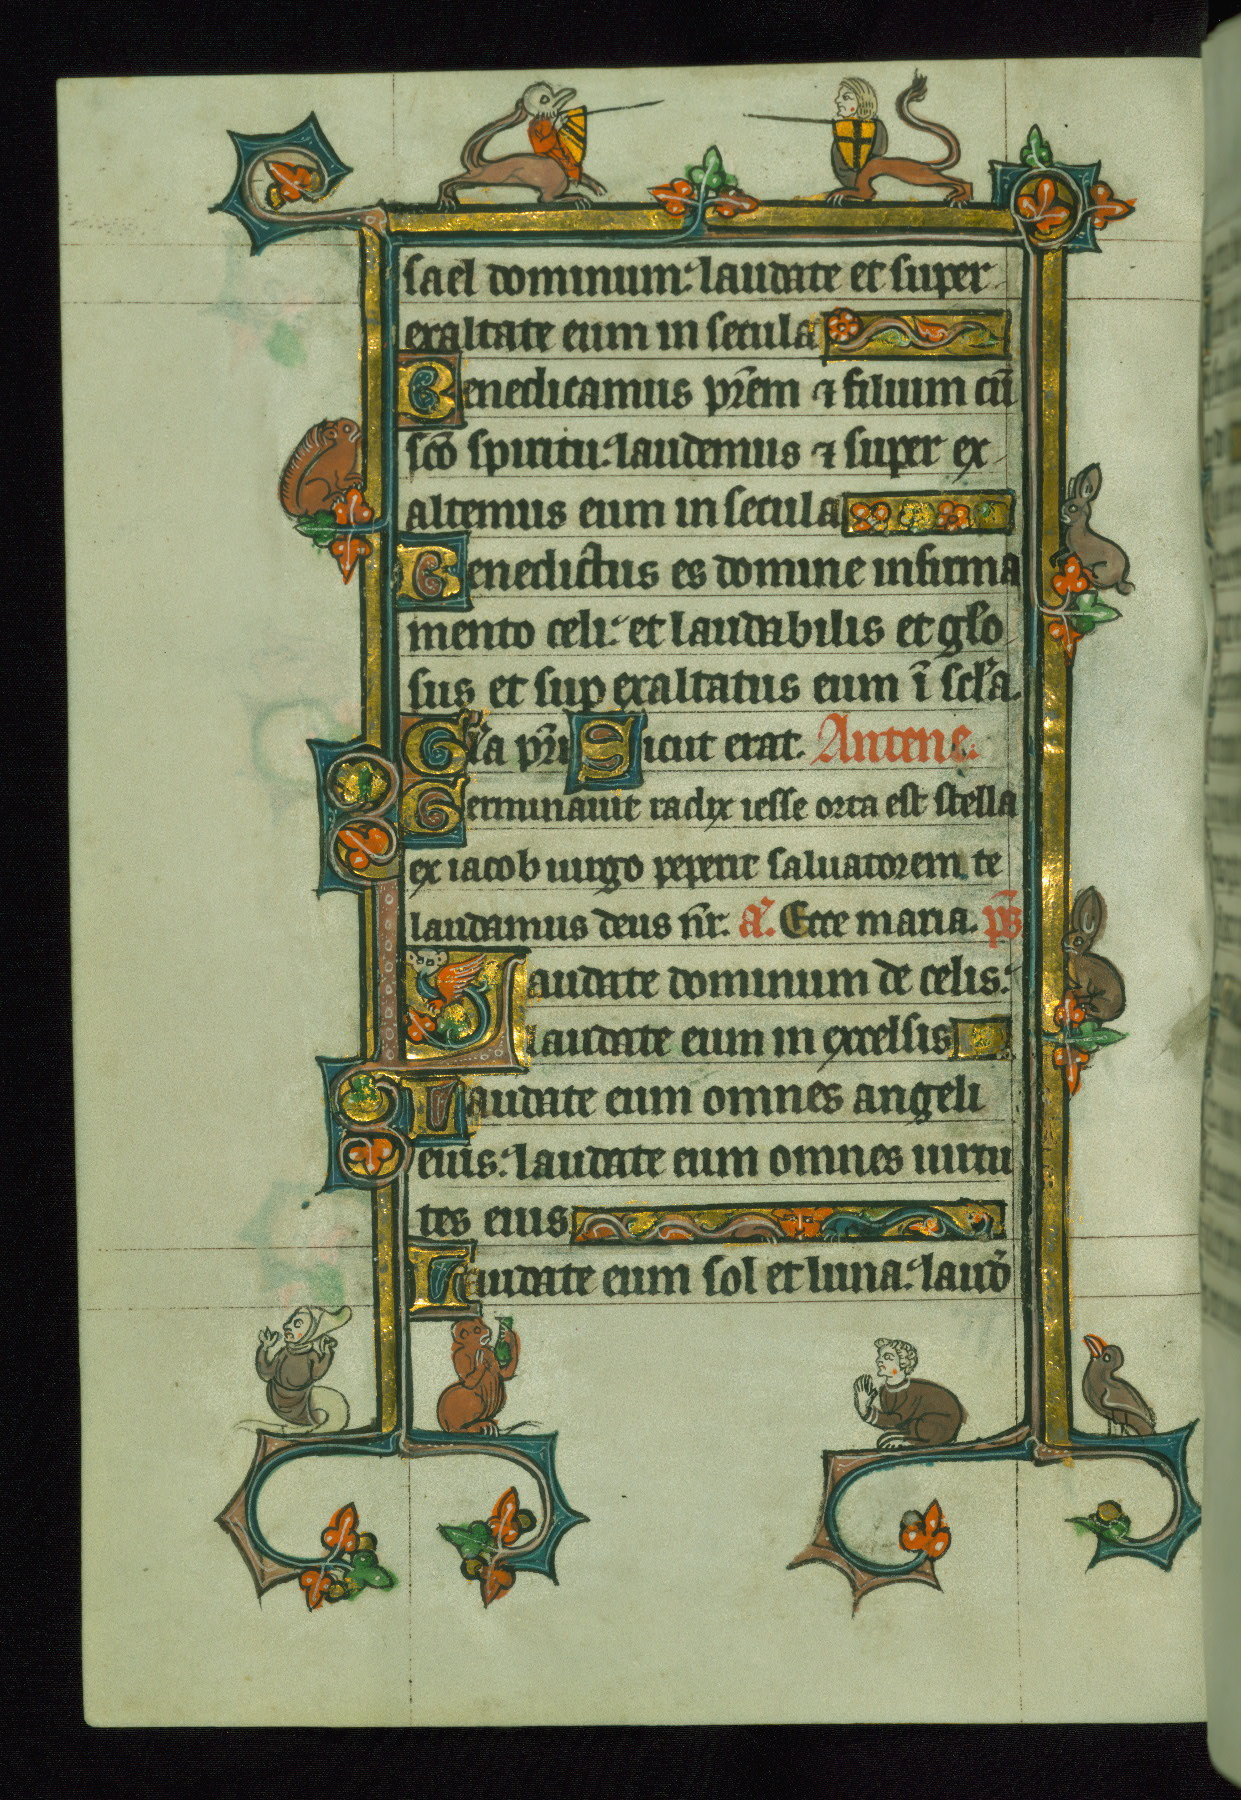 sael dominum: laudate et super
exaltate eum in secula
Benedicamus pr̄em ⁊ filium cū
sc̄o spiritu: laudemus ⁊ super ex
altemus eum in secula
Benedictus es domine in firma
mento celi: et laudabilis et gl'o
sus et sup exaltatus eum ī scl'a.
Gl'a pr̄i Sicut erat. Antene.
Germinauit radix iesse orta est stella
ex iacob uirgo peperit saluatorem te
laudamus deus nr̄. a'. Ecce maria. ps̄
Laudate dominum de celis:
laudate eum in excelsis
Laudate eum omnes angeli
eius: laudate eum omnes uirtu
tes eius
Laudate eum sol et luna: laud'